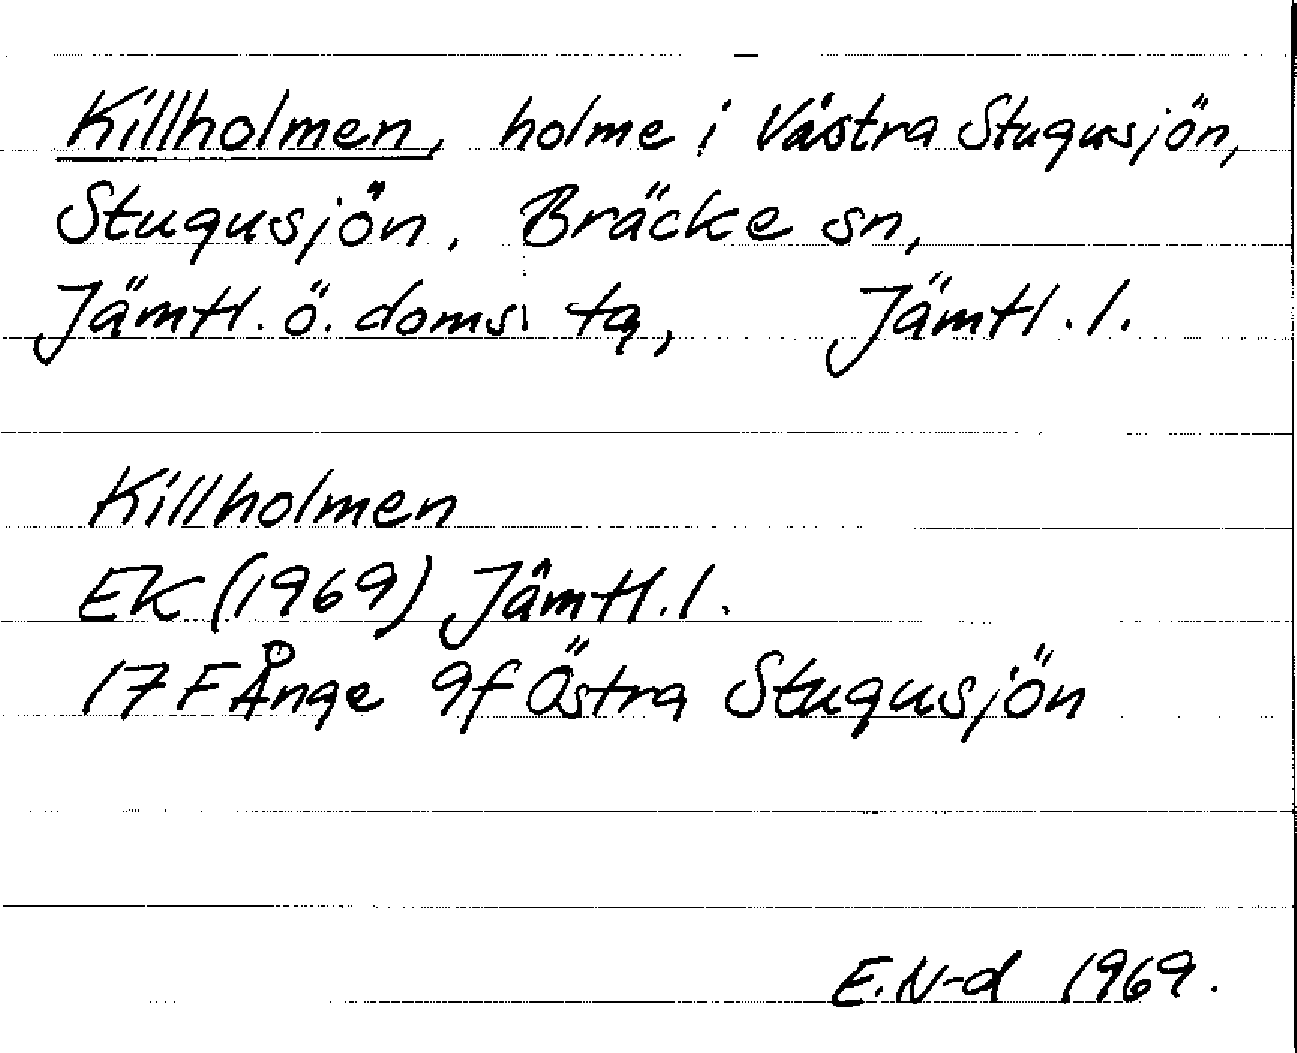 Killholmen, holme i Västra Stugusjön,
Stugusjön. Bräcke sn,
Jämtl. ö. doms. tg, Jämtl. l.
Killholmen
EK (1969) Jämtl. l.
17 F Ånge 9f Östra Stugusjön
E. N-d 1969.